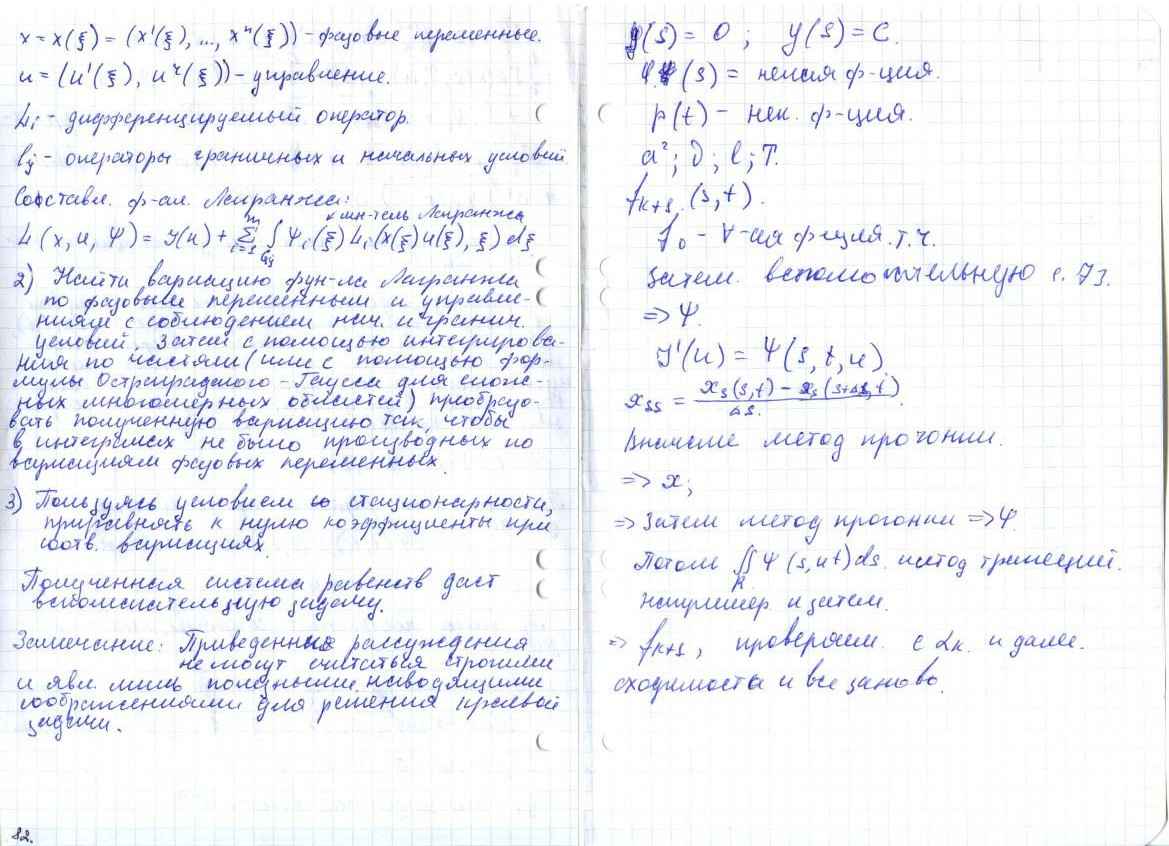 x = x(ξ) = (x¹(ξ), ..., xⁿ(ξ)) - фазовые переменные.
u = (u¹(ξ), uʳ(ξ)) - управление.
Lᵢ - дифференцируемый оператор.
lⱼ - операторы граничных и начальных условий
Составл. ф-ал. Лагранжа:
мн-тель Лагранжа
L(x, u, Ψ) = J(u) + Σ ∫ Ψᵢ(ξ) Lᵢ(x(ξ) u(ξ), ξ) dξ
2) Найти вариацию фун-ла Лагранжа
по фазовым переменным и управле-
ниям с соблюдением нач. и гранич.
условий. Затем с помощью интегрирова-
ния по частям (или с помощью фор-
мулы Остроградского - Гаусса для слож-
ных многомерных областей) преобразо-
вать полученную вариацию так, чтобы
в интегралах не было производных по
вариациям фазовых переменных.
3) Пользуясь условием стационарности,
приравнять к нулю коэффициенты при
соотв. вариациях.
Полученная система равенств даст
вспомогательную задачу.
Замечание: Приведенные рассуждения
не могут считаться строгими
и явл. лишь полезными наводящими
соображениями для решения краевой
задачи.
82.
y(s) = 0; y(s) = C.
φ(s) = некая ф-ция.
p(t) - нек. ф-ция.
a²; ν; l; T.
fₖ₊₁(s,t).
f₀ - ∀-ая ф-ция. т.ч.
Затем вспомогательную с. 73.
=> Ψ.
J'(u) = Ψ(s, t, u)
xₛₛ = (xₛ(s,t) - xₛ(s+Δs, t)) / Δs.
Вначале метод прогонки.
=> x;
=> Затем метод прогонки => Ψ.
Потом ∬ Ψ(s, ut) ds. метод трапеций.
например и затем.
=> fₖ₊₁, проверяем с αₖ. и далее.
сходимость и все заново.